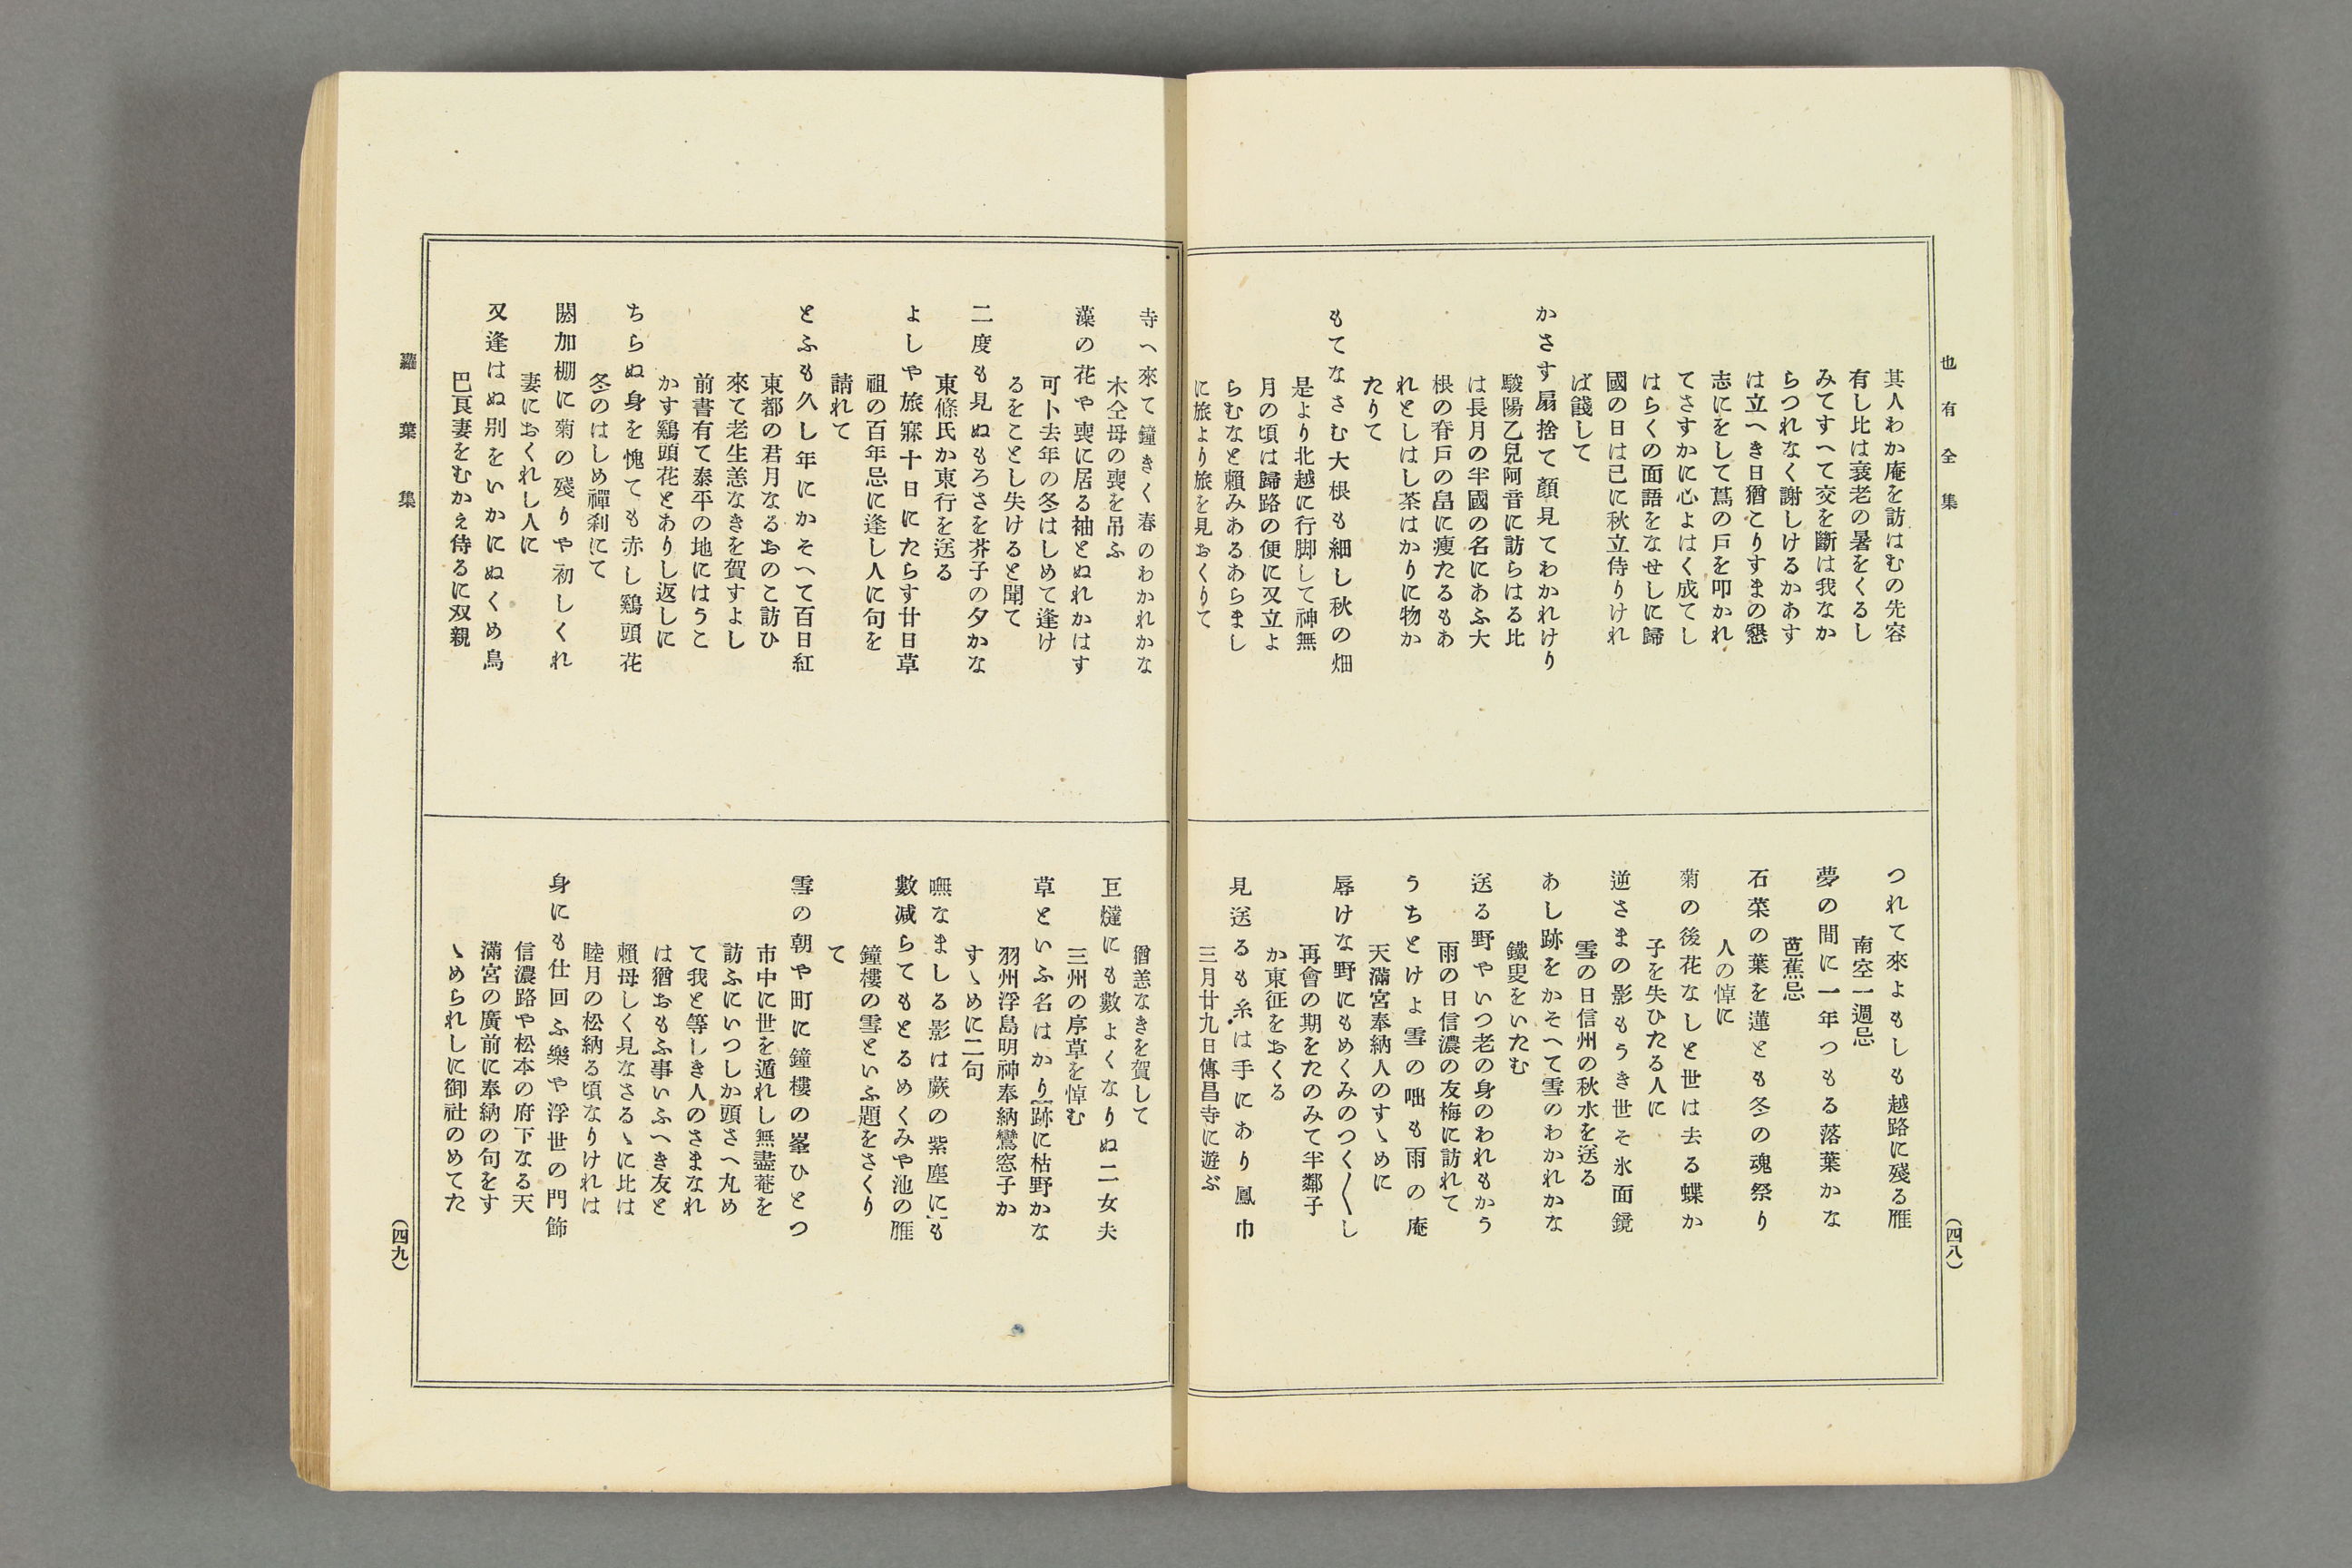 也有全集
其人わか庵を訪はむの先容
有し比は衰老の暑をくるし
みてすへて交を斷は我なか
らつれなく謝しけるかあす
は立へき日猶こりすまの懇
志にをして蔦の戸を叩かれ
てさすかに心よはく成てし
はらくの面語をなせしに歸
國の日は已に秋立侍りけれ
ば餞して
かさす扇捨て顏見てわかれけり
駿陽乙兒阿音に訪らはる比
は長月の半國の名にあふ大
根の脊戸の畠に瘦たるもあ
れとしはし茶はかりに物か
たりて
もてなさむ大根も細し秋の畑
是より北越に行脚して神無
月の頃は歸路の便に又立よ
らむなと賴みあるあらまし
に旅より旅を見おくりて
つれて來よもしも越路に殘る雁
南空一週忌
夢の間に一年つもる落葉かな
芭蕉忌
石菜の葉を蓮とも冬の魂祭り
人の悼に
菊の後花なしと世は去る蝶か
子を失ひたる人に
逆さまの影もうき世そ氷面鏡
雪の日信州の秋水を送る
あし跡をかそへて雪のわかれかな
鐵叟をいたむ
送る野やいつ老の身のわれもかう
雨の日信濃の友梅に訪れて
うちとけよ雪の咄も雨の庵
天滿宮奉納人のすゝめに
辱けな野にもめくみのつく〳〵し
再會の期をたのみて半鄰子
か東征をおくる
見送るも糸は手にあり鳳巾
三月廿九日傳昌寺に遊ぶ
(四八)
寺へ來て鐘きく春のわかれかな
木仝母の喪を吊ふ
藻の花や喪に居る袖とぬれかはす
可卜去年の冬はしめて逢け
るをことし失けると聞て
二度も見ぬもろさを芥子の夕かな
東條氏か東行を送る
よしや旅寐十日にたらす廿日草
祖の百年忌に逢し人に句を
請れて
とふも久し年にかそへて百日紅
東都の君月なるおのこ訪ひ
來て老生恙なきを賀すよし
前書有て泰平の地にはうこ
かす鷄頭花とありし返しに
ちらぬ身を愧ても赤し鷄頭花
冬のはしめ禪刹にて
閼加棚に菊の殘りや初しくれ
妻におくれし人に
又逢はぬ別をいかにぬくめ鳥
巴良妻をむかえ侍るに双親
猶恙なきを賀して
巨燵にも數よくなりぬ二女夫
三州の序草を悼む
草といふ名はかり跡に枯野かな
羽州浮島明神奉納鸞窓子か
すゝめに二句
嘸なましる影は蕨の紫塵にも
數减らてもとるめくみや池の雁
鐘樓の雪といふ題をさくり
て
雪の朝や町に鐘樓の峯ひとつ
市中に世を遁れし無盡菴を
訪ふにいつしか頭さへ丸め
て我と等しき人のさまなれ
は猶おもふ事いふへき友と
賴母しく見なさるゝに比は
睦月の松納る頃なりけれは
身にも仕回ふ樂や浮世の門飾
信濃路や松本の府下なる天
滿宮の廣前に奉納の句をす
ゝめられしに御社のめてた
蘿葉集
(四九)